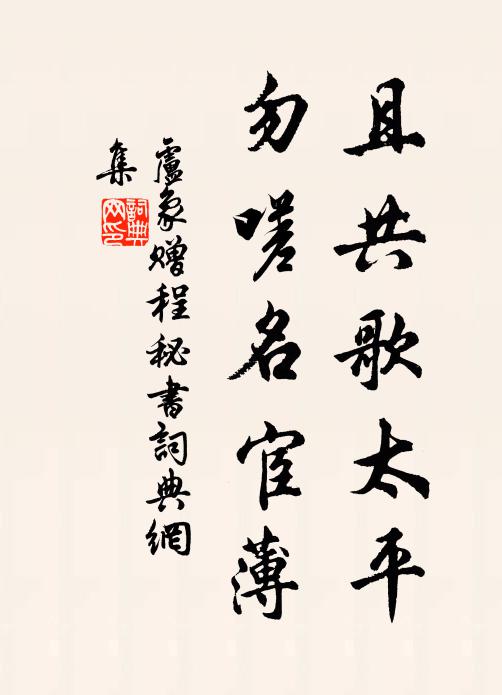 且共歌太平
勿嗟名宦薄
盧象贈程秘書詞典網
集
詞典
网印